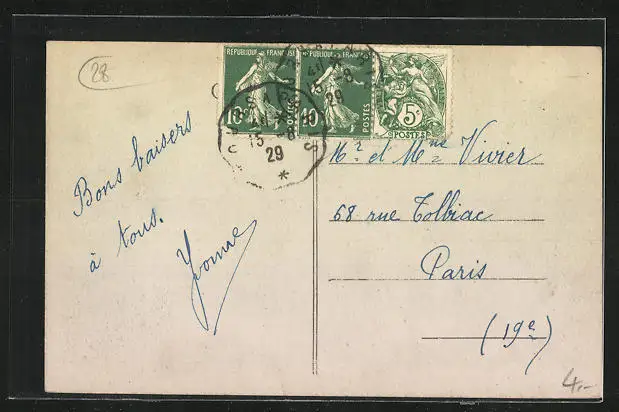 28
REPUBLIQUE FRANÇAISE
10c
POSTES
REPUBLIQUE FRANÇAISE
10c
POSTES
5c
POSTES
15-8
29
15-8
29
*
Bons baisers
à tous.
Yvonne
Mr et Mme Vivier
68 rue Tolbiac
Paris
(19e)
4.-